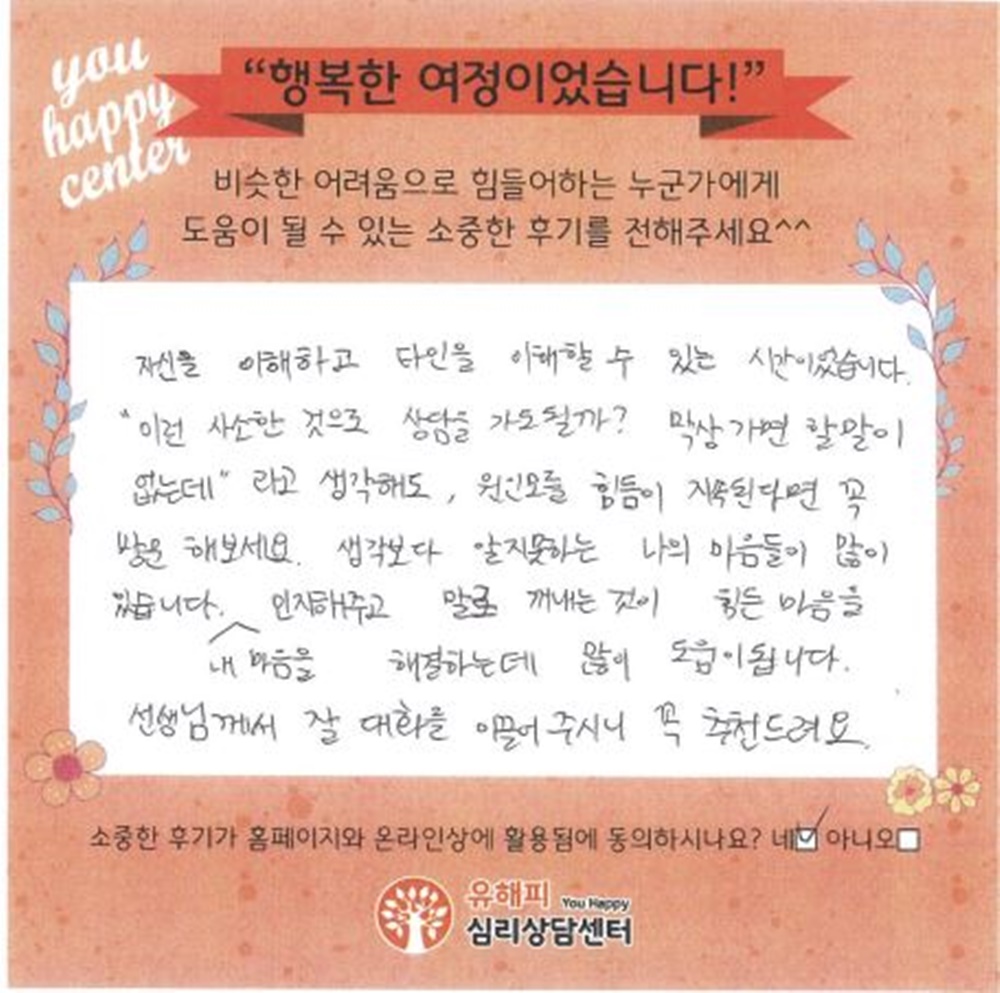 you
happy
center
“행복한 여정이었습니다!”
비슷한 어려움으로 힘들어하는 누군가에게
도움이 될 수 있는 소중한 후기를 전해주세요^^
자신을 이해하고 타인을 이해할 수 있는 시간이었습니다.
"이런 사소한 것으로 상담을 가도될까? 막상가면 할말이
없는데" 라고 생각해도, 원인모를 힘듦이 지속된다면 꼭
방문 해보세요. 생각보다 알지못하는 나의 마음들이 많이
있습니다. 인지해주고 말로 꺼내는 것이 힘든 마음을
내 마음을 해결하는데 많이 도움이됩니다.
선생님께서 잘 대화를 이끌어 주시니 꼭 추천드려요.
소중한 후기가 홈페이지와 온라인상에 활용됨에 동의하시나요? 네☑ 아니오☐
유해피 You Happy
심리상담센터